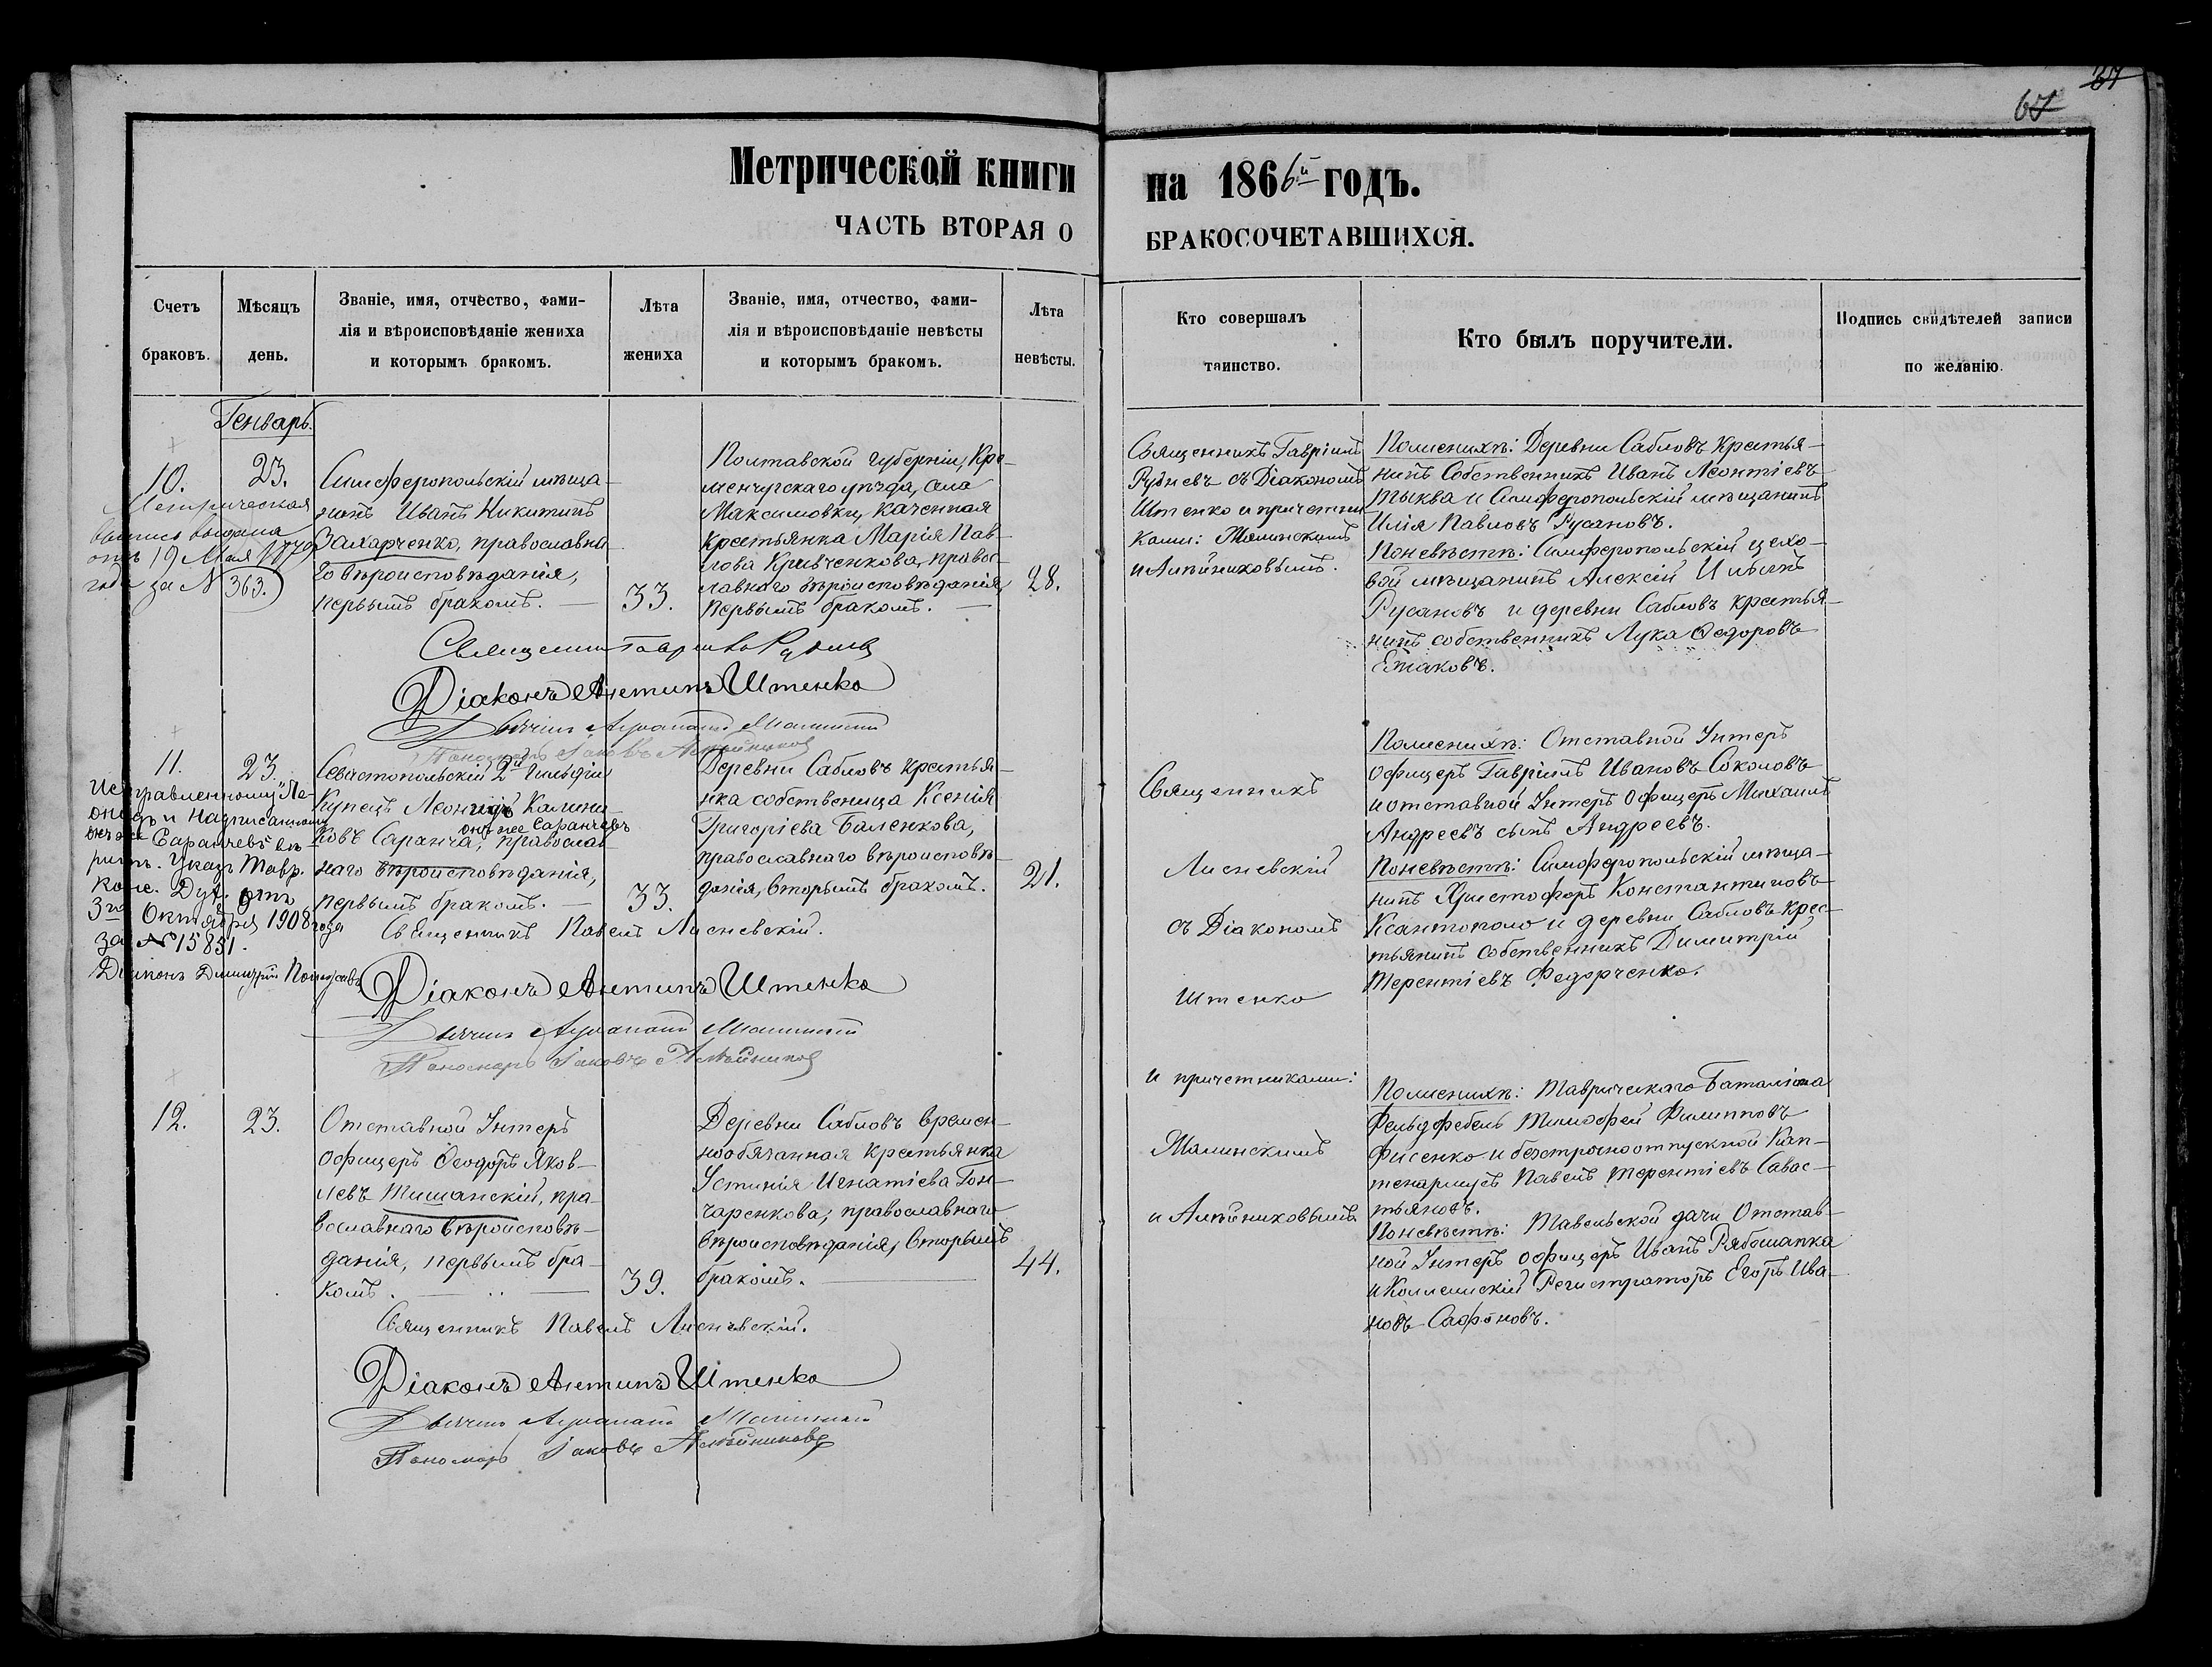 37
67
Метрической книги на 1866й годъ.
ЧАСТЬ ВТОРАЯ О БРАКОСОЧЕТАВШИХСЯ.
Счетъ
браковъ.
Мѣсяцъ
день.
Званіе, имя, отчество, фами-
лія и вѣроисповѣданіе жениха
и которымъ бракомъ.
Лѣта
жениха
Званіе, имя, отчество, фами-
лія и вѣроисповѣданіе невѣсты
и которымъ бракомъ.
Лѣта
невѣсты.
Кто совершалъ
таинство.
Кто былъ поручители.
Подпись свидѣтелей записи
по желанію.
Генварь.
10.
Метрическая
выпись выдана
отъ 19 Мая 1879
года за N 363.
23.
Симферопольскій мѣща-
нинъ Иванъ Никитинъ
Захарченко, православна-
го вѣроисповѣданія,
первымъ бракомъ. —
33.
Полтавской губерніи, Кре-
менчугскаго уѣзда, села
Максимовки, каченная
крестьянка Марія Пав-
лова Кривченкова, правос-
лавнаго вѣроисповѣданія,
первымъ бракомъ. —
28.
Священникъ Гавріилъ
Рудневъ съ Діакономъ
Штенко и причетни-
ками: Малинскимъ
и Алѣйниковымъ.
Пожениху: Деревни Сабловъ крестья-
нинъ Собственникъ Иванъ Леонтіевъ
Тыква и Симферопольскій мѣщанинъ
Илія Павловъ Русановъ.
Поневѣстѣ: Симферопольскій цехо-
вой мѣщанинъ Алексій Ильинъ
Русановъ и деревни Сабловъ крестья-
нинъ собственникъ Лука Ѳедоровъ
Ежаковъ.
Священникъ Гавріилъ Рудневъ
Діаконъ Антипъ Штенко
Дьячекъ Малинскій
Пономарь Іаковъ Алѣйниковъ
11.
Исправленному „Ле-
онидъ“ и надписанному
онъ же Саранчевъ вѣ-
рить. Указъ Тавр.
Конс. Дух. отъ
3го Октября 1908 года
за № 15851.
Діаконъ Димитрій
23.
Севастопольскій 2й Гильдіи
Купецъ Леонидъ Калини-
ковъ Саранча, онъ же Саранчевъ православ-
наго вѣроисповѣданія,
первымъ бракомъ. —
33.
Деревни Сабловъ крестьян-
ка собственица Ксенія
Григоріева Баленкова,
православнаго вѣроисповѣ-
данія, вторымъ бракомъ.
21.
Священникъ
Лисневскій
съ Діакономъ
Штенко
и причетниками:
Малинскимъ
и Алѣйниковымъ
Пожениху: Отставной Унтеръ
офицеръ Гавріилъ Ивановъ Соколовъ
и отставной Унтеръ Офицеръ Михаилъ
Андреевъ сынъ Андреевъ.
Поневѣстѣ: Симферопольскій мѣща-
нинъ Христофоръ Константиновъ
Ксантополо и деревни Сабловъ крес-
тьянинъ собственникъ Димитрій
Терентіевъ Федорченко.
Священникъ Павелъ Лисневскій.
Діаконъ Антипъ Штенко
Дьячекъ Малинскій
Пономарь Іаковъ Алѣйниковъ
12.
23.
Отставной Унтеръ
офицеръ Ѳеодоръ Яков-
левъ Тишанскій, пра-
вославнаго вѣроисповѣ-
данія, первымъ бра-
комъ. —
39.
Деревни Сабловъ времен-
нообязанная крестьянка
Устинія Игнатіева Гон-
чаренкова, православнаго
вѣроисповѣданія, вторымъ
бракомъ. —
44.
Пожениху: Таврическаго Баталіона
Фельдфебель Тимофей Филипповъ
Фисенко и безсрочноотпускной Кап-
тенармусъ Павелъ Терентіевъ Савас-
тьяновъ.
Поневѣстѣ: Тавельской дачи Отстав-
ной Унтеръ офицеръ Иванъ Рябошапка
и Коллежскій Регистраторъ Егоръ Ива-
новъ Сафоновъ.
Священникъ Павелъ Лисневскій.
Діаконъ Антипъ Штенко
Дьячекъ Малинскій
Пономарь Іаковъ Алѣйниковъ